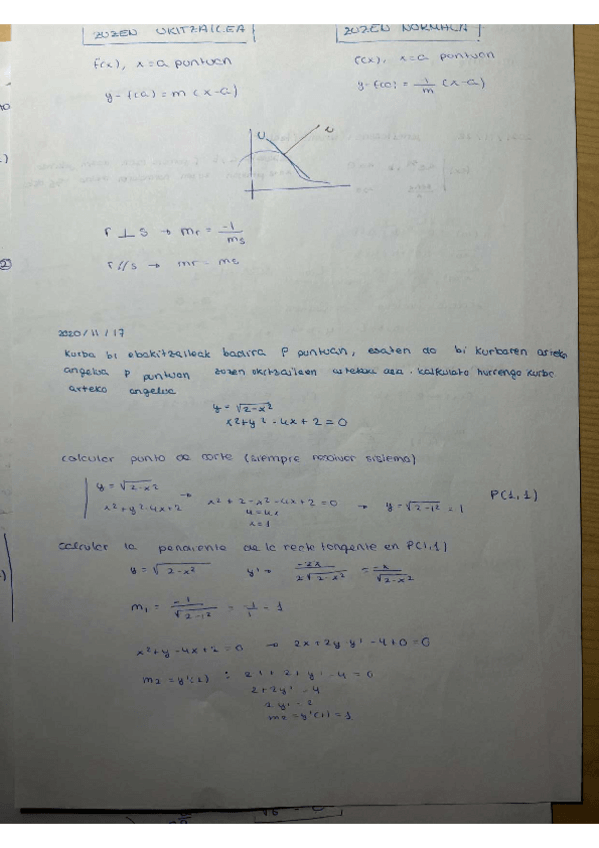 ZUZEN UKITZAILEA
ZUZEN NORMALA
f(x), x=a puntuan
f(x), x=a puntuan
y-f(a) = m (x-a)
y-f(a) = 1/m (x-a)
r ⊥ s → mr = -1/ms
r//s → mr = ms
2020/11/17
Kurba bi ebakitzaileak badira P puntuan, esaten da bi kurbaren arteko
angelua P puntuan zuzen ukitzaileen dela. Kalkulatu hurrengo kurba
arteko angelua
y = √2-x²
x²+y²-4x+2=0
calcular punto de corte (siempre resolver sistema)
y = √2-x²
x²+y²-4x+2 → x²+2-x²-4x+2=0 → y=√2-1²=1 P(1,1)
4=4x
x=1
calcular la pendiente de la recta tangente en P(1,1)
y = √2-x² y' = -2x/2√2-x² = -x/√2-x²
m₁ = -1/√2-1² = 1/1 = 1
x²+y-4x+2=0 → 2x+2y·y'-4+0=0
m₂=y'(1) : 2·1+2·1 y'-4=0
2+2y'=4
2y'=2
m₂=y'(1)=1